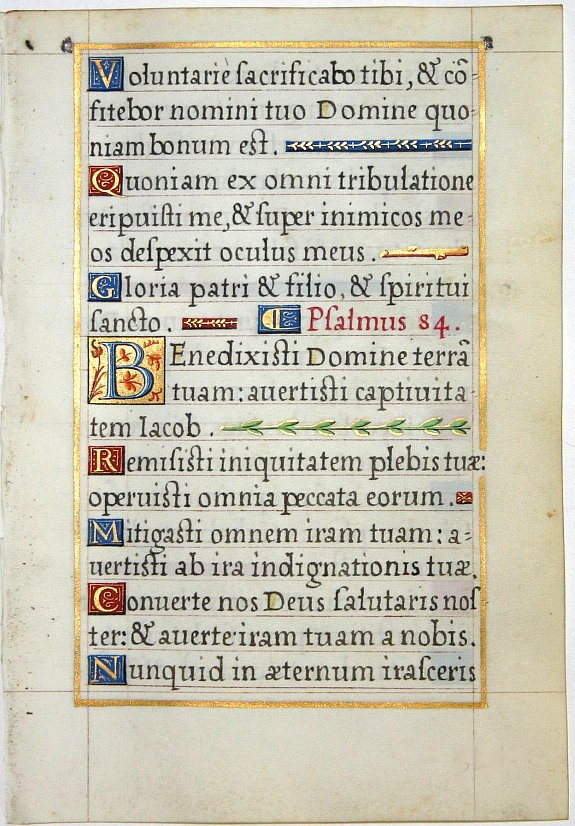 Voluntarie sacrificabo tibi, & cõ-
fitebor nomini tuo Domine quo-
niam bonum est.
Quoniam ex omni tribulatione
eripuisti me, & super inimicos me-
os despexit oculus meus.
Gloria patri & filio, & spiritui
sancto. Psalmus 84.
BEnedixisti Domine terrã
tuam: avertisti captivita-
tem Iacob.
Remisisti iniquitatem plebis tuæ:
operuisti omnia peccata eorum.
Mitigasti omnem iram tuam: a-
uertisti ab ira indignationis tuæ.
Conuerte nos Deus salutaris nos
ter: & averte iram tuam a nobis.
Nunquid in æternum irasceris